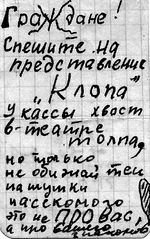 Граждане!
Спешите на
представление
„Клопа"
У кассы хвост
в театре
толпа,
но только
не обижайтесь
на шутки
насекомого
это не ПРО вас,
а про ваших
знакомых